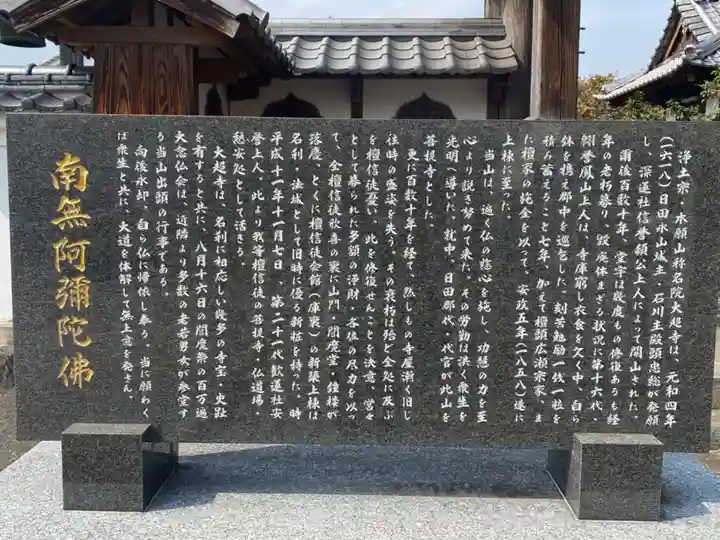 浄土宗・水願山称名院大超寺は、元和四年
(一六一八)日田永山城主・石川主殿頭忠総が発願
し、深蓮社信誉領公上人によって開山された。
爾後百数十年、堂宇は幾度もの修復あるも経
年の老朽募り、毀廃休まざる状況に第十六代
翱誉鳳山上人は、寺庫窮し衣食を欠く中、自ら
鉢を携え郡中を巡乞した。刻苦勉励一銭一粒を
積み蓄えること七年、加えて檀頭広瀬宗家、ま
た檀家の純金を以って、安政五年(一八五八)遂に
上棟に至った。
当山は、遍く仏の慈心を施し、功慧の力を至
心より説き努めて来た。その労勤は洪く衆生を
光明へ導いた。就中、日田郡代、代官が此山を
菩提寺とした。
更に百数十年を経て、然しもの寺屋漸く旧し
往時の盛姿を失う。その衰朽は殆ど全処に及ぶ
を檀信徒憂い、此を修復せんことを決意、営々
として募られた多額の浄財・各位の尽力を以っ
て、全檀信徒欣喜の裏に山門・閻魔堂・鐘楼が
落慶、とくに檀信徒会館(庫裏)の新築上棟は
名刹・法城として旧時に優る新粧を持た。時
平成十一年十一月七日、第二十一代歓蓮社安
誉上人、此より我等檀信徒の菩提寺・仏道場・
憩安処として活きる。
大超寺は、名刹に相応しい幾多の寺宝・史跡
を有すると共に、八月十六日の閻魔祭の百万遍
大念仏会は、近隣より多数の老若男女が参堂す
る当山出頭の行事である。
向後永却、自ら仏に帰依し奉る。当に願わく
は衆生と共に、大道を体解して無上意を発さん。
南無阿彌陀佛